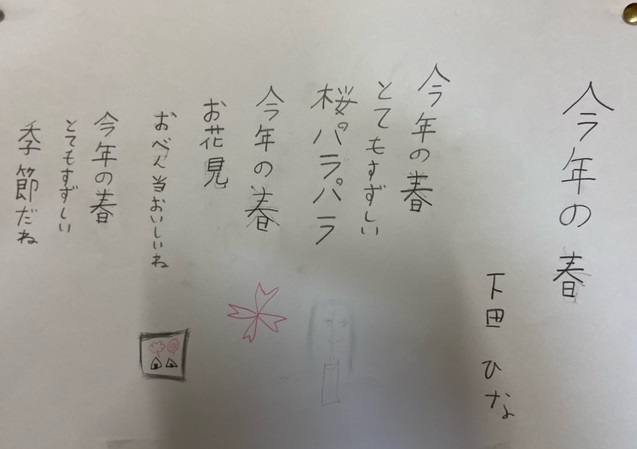 今年の春
下田 ひな
今年の春
とてもすずしい
桜パラパラ
今年の春
お花見
おべん当おいしいね
今年の春
とてもすずしい
季節だね